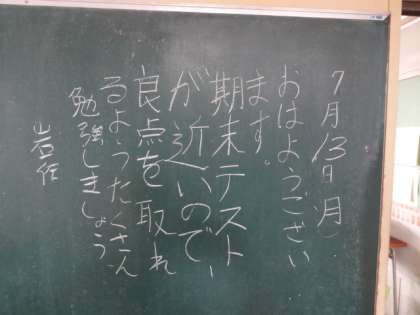 7月13日(月)
おはようござい
ます。
期末テスト
が近いので、
良点を取れ
るようたくさん
勉強しましょう。
岩佐